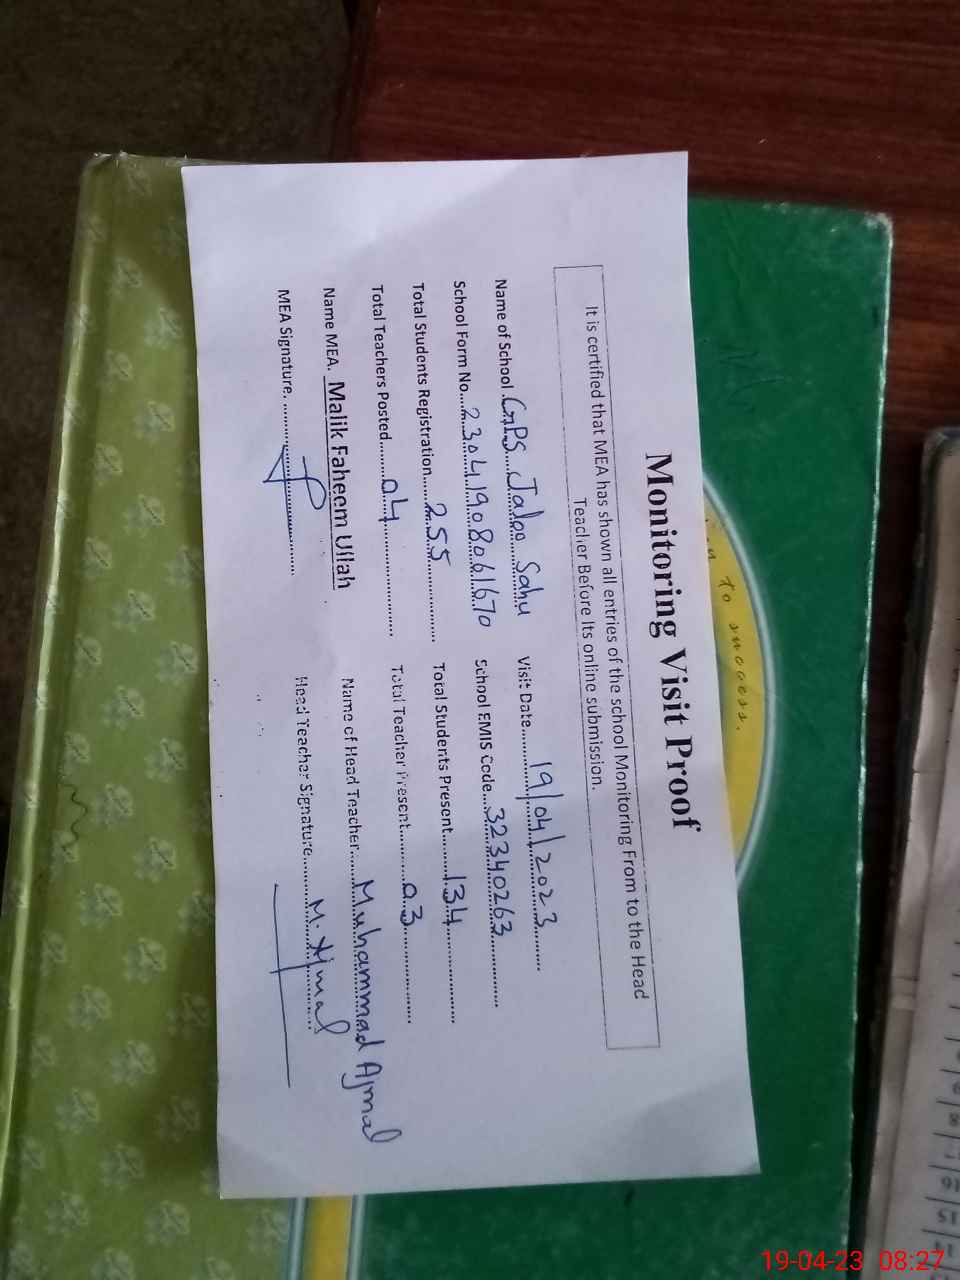 Monitoring Visit Proof
It is certified that MEA has shown all entries of the school Monitoring From to the Head
Teacher Before Its online submission.
Name of School. GPS Jaloo Sahu Visit Date 19/04/2023
School Form No. 23041908061670 School EMIS Code 32340263
Total Students Registration 255 Total Students Present 134
Total Teachers Posted 04 Total Teacher Present 03
Name MEA. Malik Faheem Ullah Name of Head Teacher Muhammad Ajmal
MEA Signature. Head Teacher Signature M. Ajmal
to success.
19-04-23 08:27